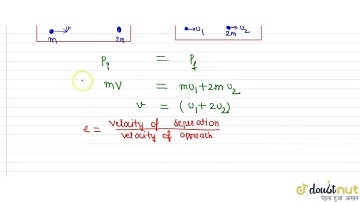 m v 2m m υ₁ 2m υ₂
Pᵢ = P_f
mv = mυ₁+2mυ₂
v = (υ₁+2υ₂)
e = velocity of separation / velocity of approach
doubtnut
पढ़ना हुआ आसान